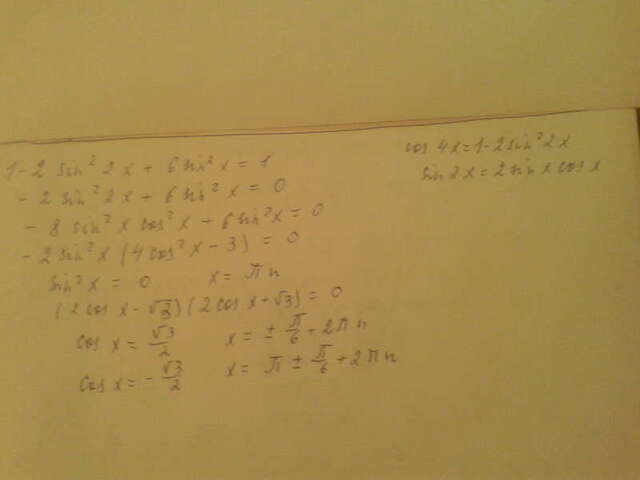 1-2 sin² 2x + 6 sin² x = 1
- 2 sin² 2x + 6 sin² x = 0
- 8 sin² x cos² x + 6 sin² x = 0
- 2 sin² x (4 cos² x - 3) = 0
sin² x = 0 x = πn
(2 cos x - √3)(2 cos x + √3) = 0
cos x = √3/2 x = ± π/6 + 2πn
cos x = - √3/2 x = π ± π/6 + 2πn
cos 4x = 1-2 sin² 2x
sin 2x = 2 sin x cos x